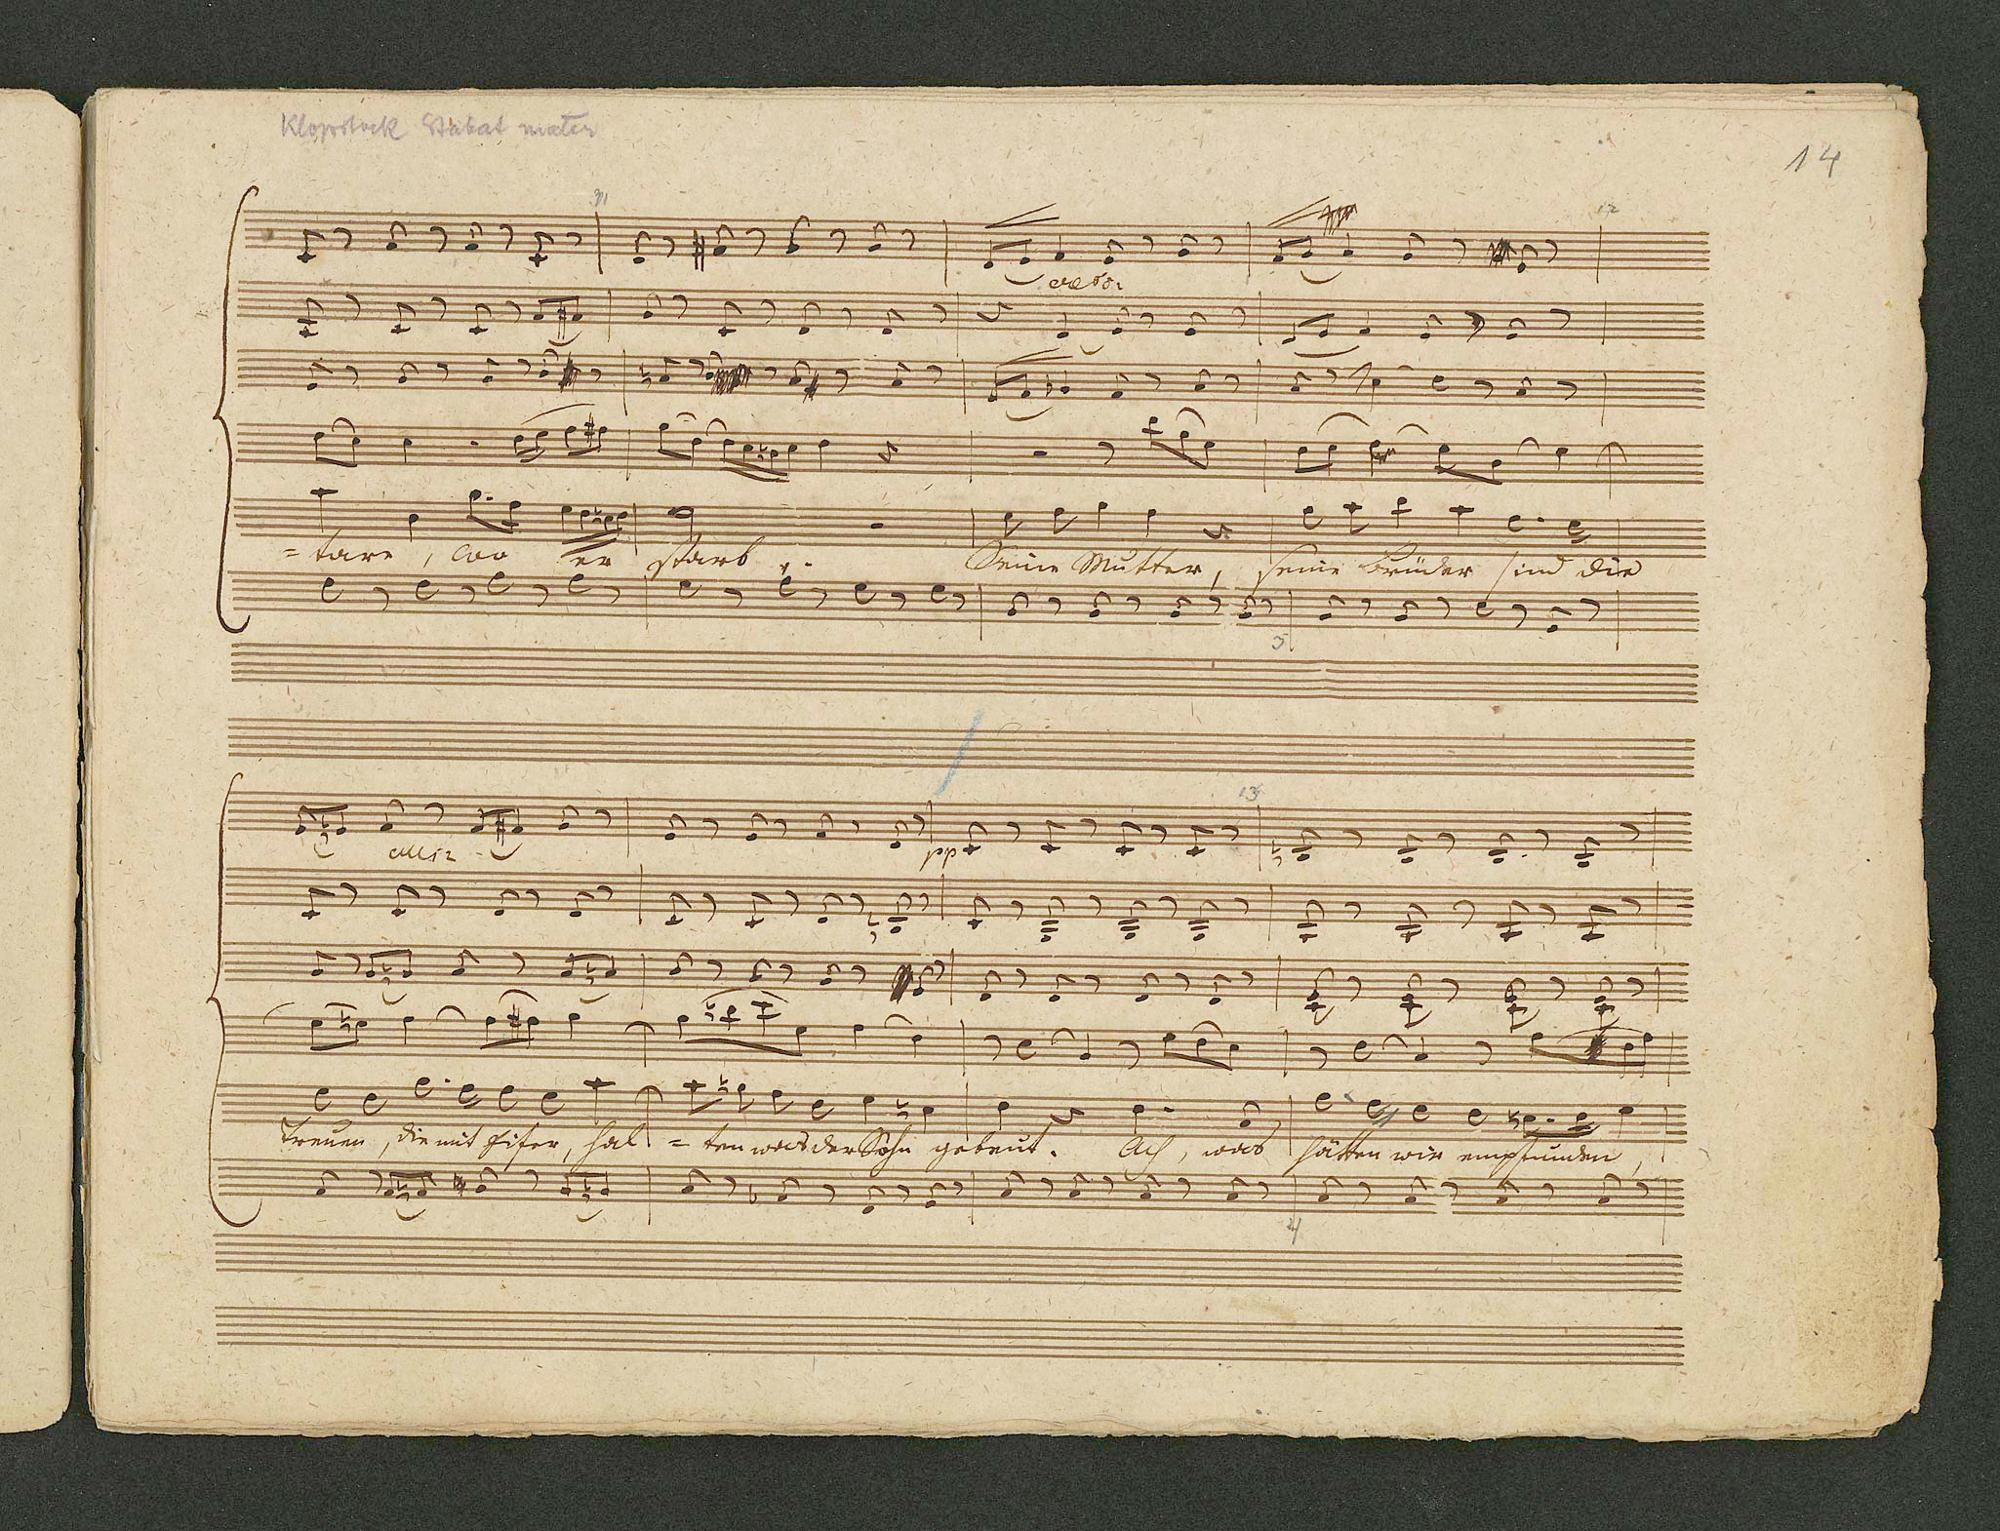 Klopstock Stabat mater
14
11
12
cresc
=tare, wo er starb. Seine Mutter, seine Brüder sind die
5
13
decresc
pp
Treuen, die mit Eifer, hal = ten was der Sohn gebeut. Ach, was hätten wir empfunden,
4